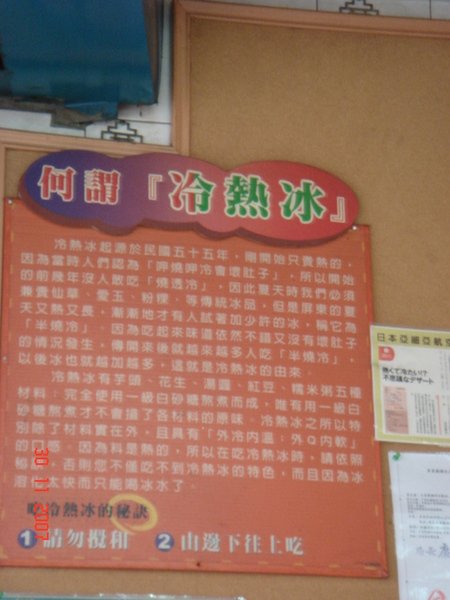 何謂『冷熱冰』
冷熱冰起源於民國五十五年，剛開始只賣熱的，
因為當時人們認為「呷燒呷冷會壞肚子」，所以開始
的前幾年沒人敢吃「燒透冷」，因此夏天時我們必須
兼賣仙草、愛玉、粉粿、等傳統冰品，但是屏東的夏
天又熱又長，漸漸地才有人試著加少許的冰，稱它為
「半燒冷」，因為吃起來味道依然不錯又沒有壞肚子
的情況發生，傳開來後就越來越多人吃「半燒冷」，
以後冰也就越加越多，這就是冷熱冰的由來。
冷熱冰有芋頭、花生、湯圓、紅豆、糯米粥五種
材料；完全使用一級白砂糖熬煮而成，唯有用一級白
砂糖熬煮才不會搶了各材料的原味。冷熱冰之所以特
別除了材料實在外，且具有「外冷內溫；外Q內軟」
的口感。因為料是熱的，所以在吃冷熱冰時、請依照
秘訣。否則您不僅吃不到冷熱冰的特色，而且因為冰
溶的太快而只能喝冰水了。
吃冷熱冰的秘訣
1 請勿攪和 2 由邊下往上吃
日本亞細亞航空
熱くて冷たい!?
不思議なデザート
30 11 2007